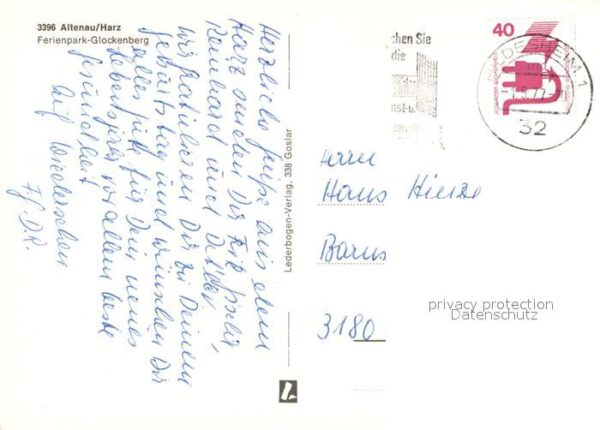 3396 Altenau/Harz
Ferienpark-Glockenberg
Herzliche Grüße aus dem
Harz senden Dir
Reinhard und
wir gratulieren Dir zu Deinem
Geburtstag und wünschen Dir
alles gute für Dein neues
Lebensjahr vor allem beste
Gesundheit
Auf Wiedersehen
Lederbogen-Verlag, 338 Goslar
chen Sie
die
40
HILDESHEIM 1
32
Herrn
Hans
3180
privacy protection
Datenschutz